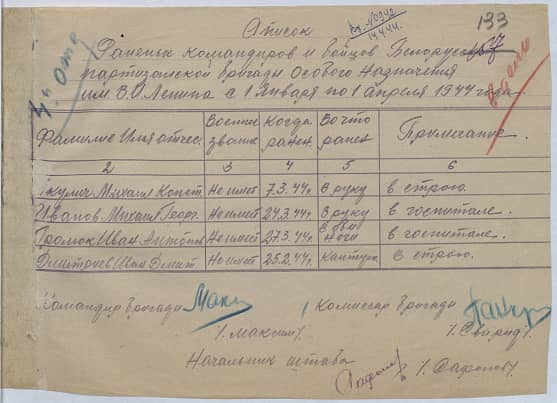 133
Вх. №
14.4.44.
Список
Раненых командиров и бойцов Белорусской
партизанской бригады Особого Назначения
им. В.И. Ленина с 1 Января по 1 апреля 1944 года.
Фамилие Имя отчес. Военное звание Когда ранен. Во что ранен Примечание.
2 3 4 5 6
Михаил Конст. Не имеет 7.3.44г. В руку в строю.
Иванов Михаил Георг. Не имеет 24.3.44г. В руку в госпитале.
Громюк Иван Не имеет 27.3.44г. В обе ноги в госпитале.
Дмитриев Иван Дмит. Не имеет 25.2.44г. Контуж. в строю.
Командир бригады Комиссар бригады
/. Максим/. /. Свирид/.
Начальник штаба /. Сафонов/.